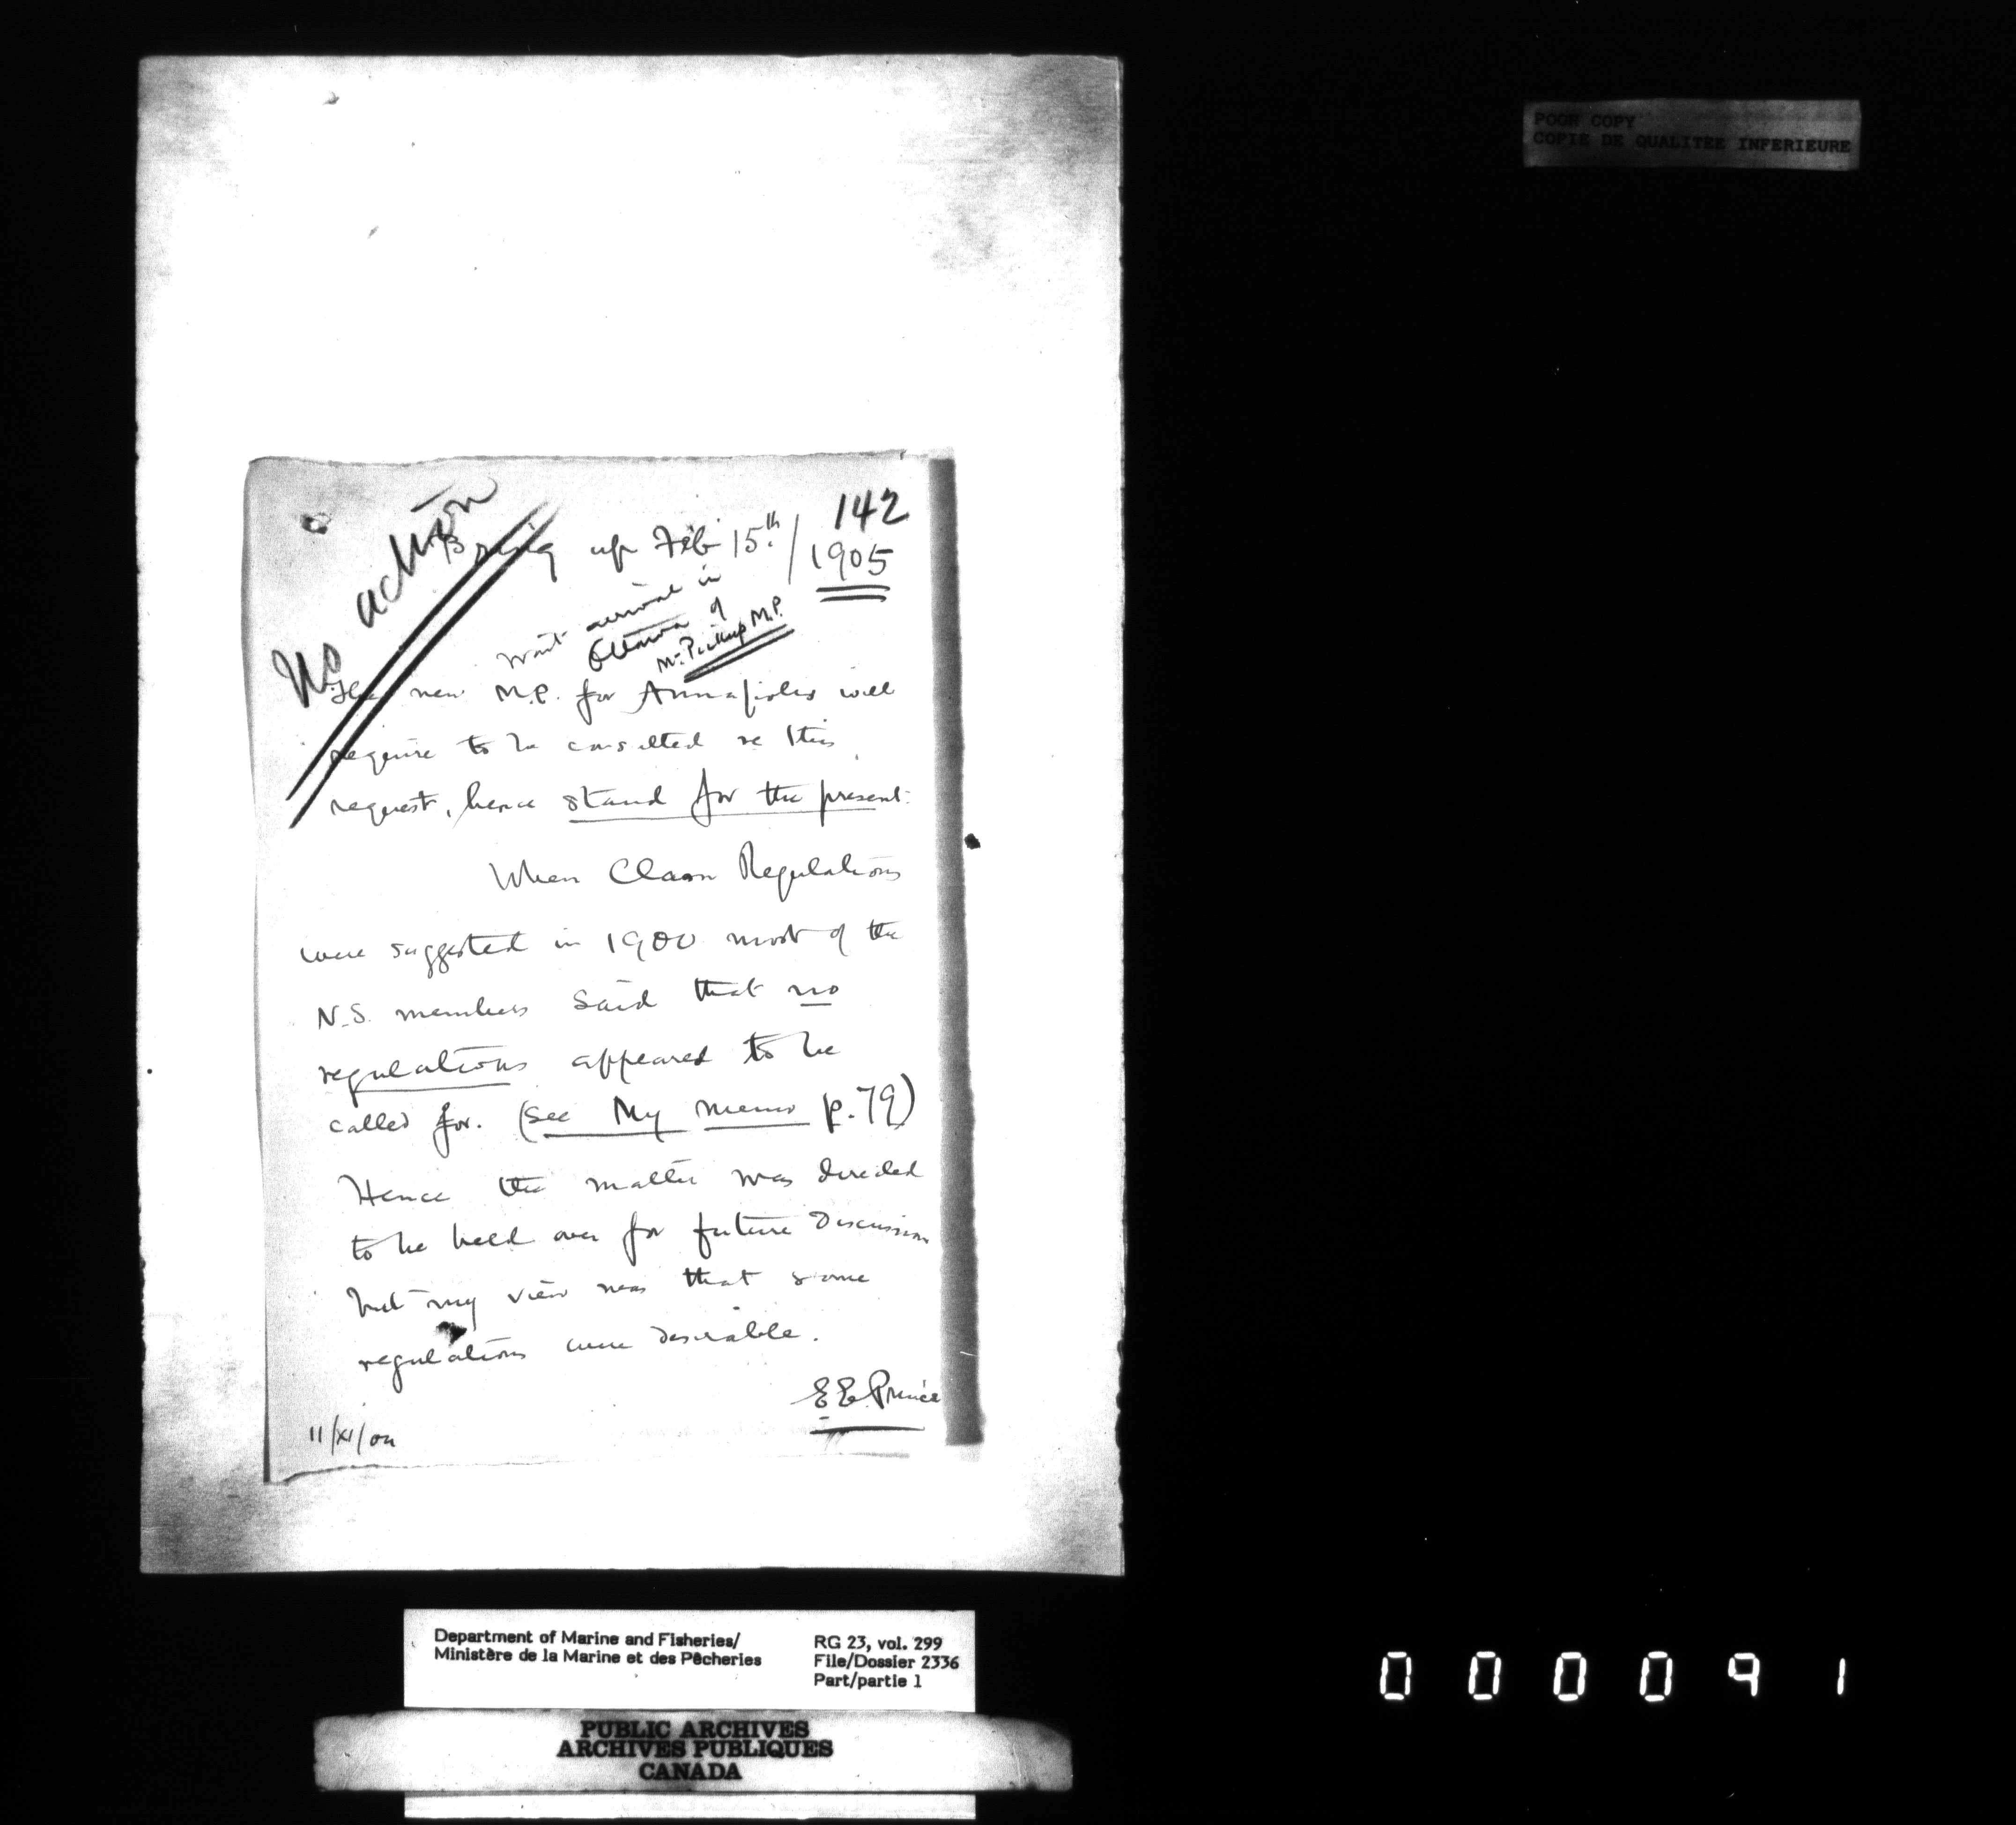 POOR COPY
COPIE DE QUALITEE INFERIEURE
142
No action
Bring up Feb 15th / 1905
Wait arrival in
Ottawa of
Mr Pickup M.P.
The new M.P. for Annapolis will
require to be consulted re this
request, hence stand for the present.
When Clam Regulations
were suggested in 1900 most of the
N.S. members said that no
regulations appeared to be
called for. (See My memo p. 79)
Hence the matter was decided
to be held over for future discussion
but my view was that some
regulations were desirable.
E E Prince
11/XI/04
Department of Marine and Fisheries/
Ministère de la Marine et des Pêcheries
RG 23, vol. 299
File/Dossier 2336
Part/partie 1
PUBLIC ARCHIVES
ARCHIVES PUBLIQUES
CANADA
000091